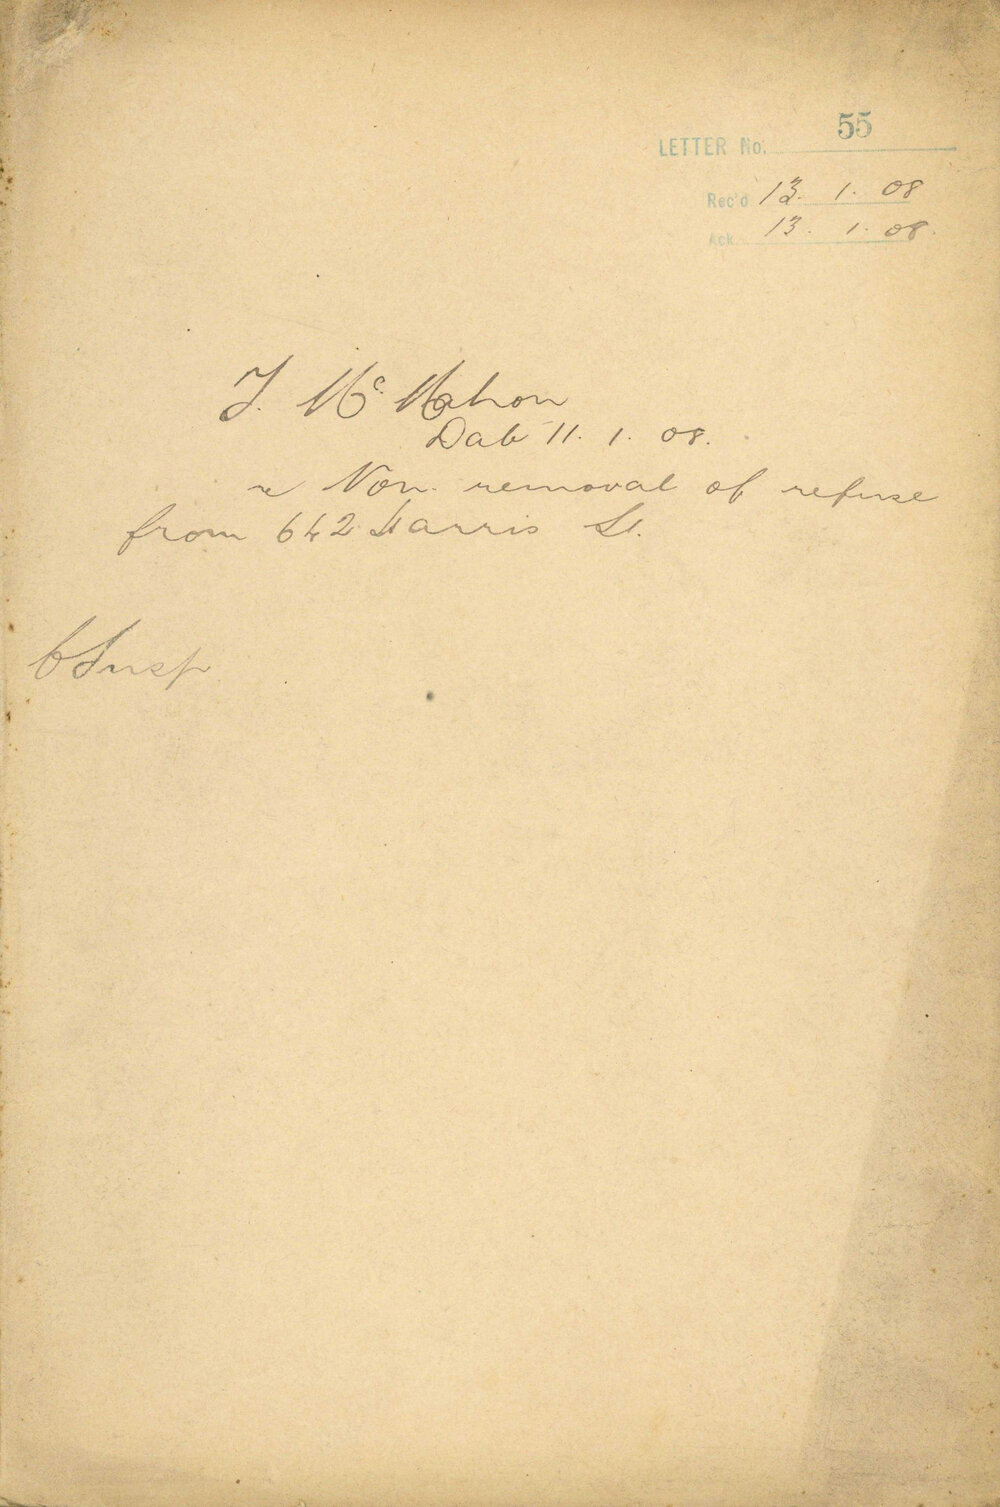 LETTER No. 55
Rec'd 13. 1. 08
Ack. 13. 1. 08.
J. McMahon
Dab 11. 1. 08.
re Non. removal of refuse
from 642 Harris St.
C Insp